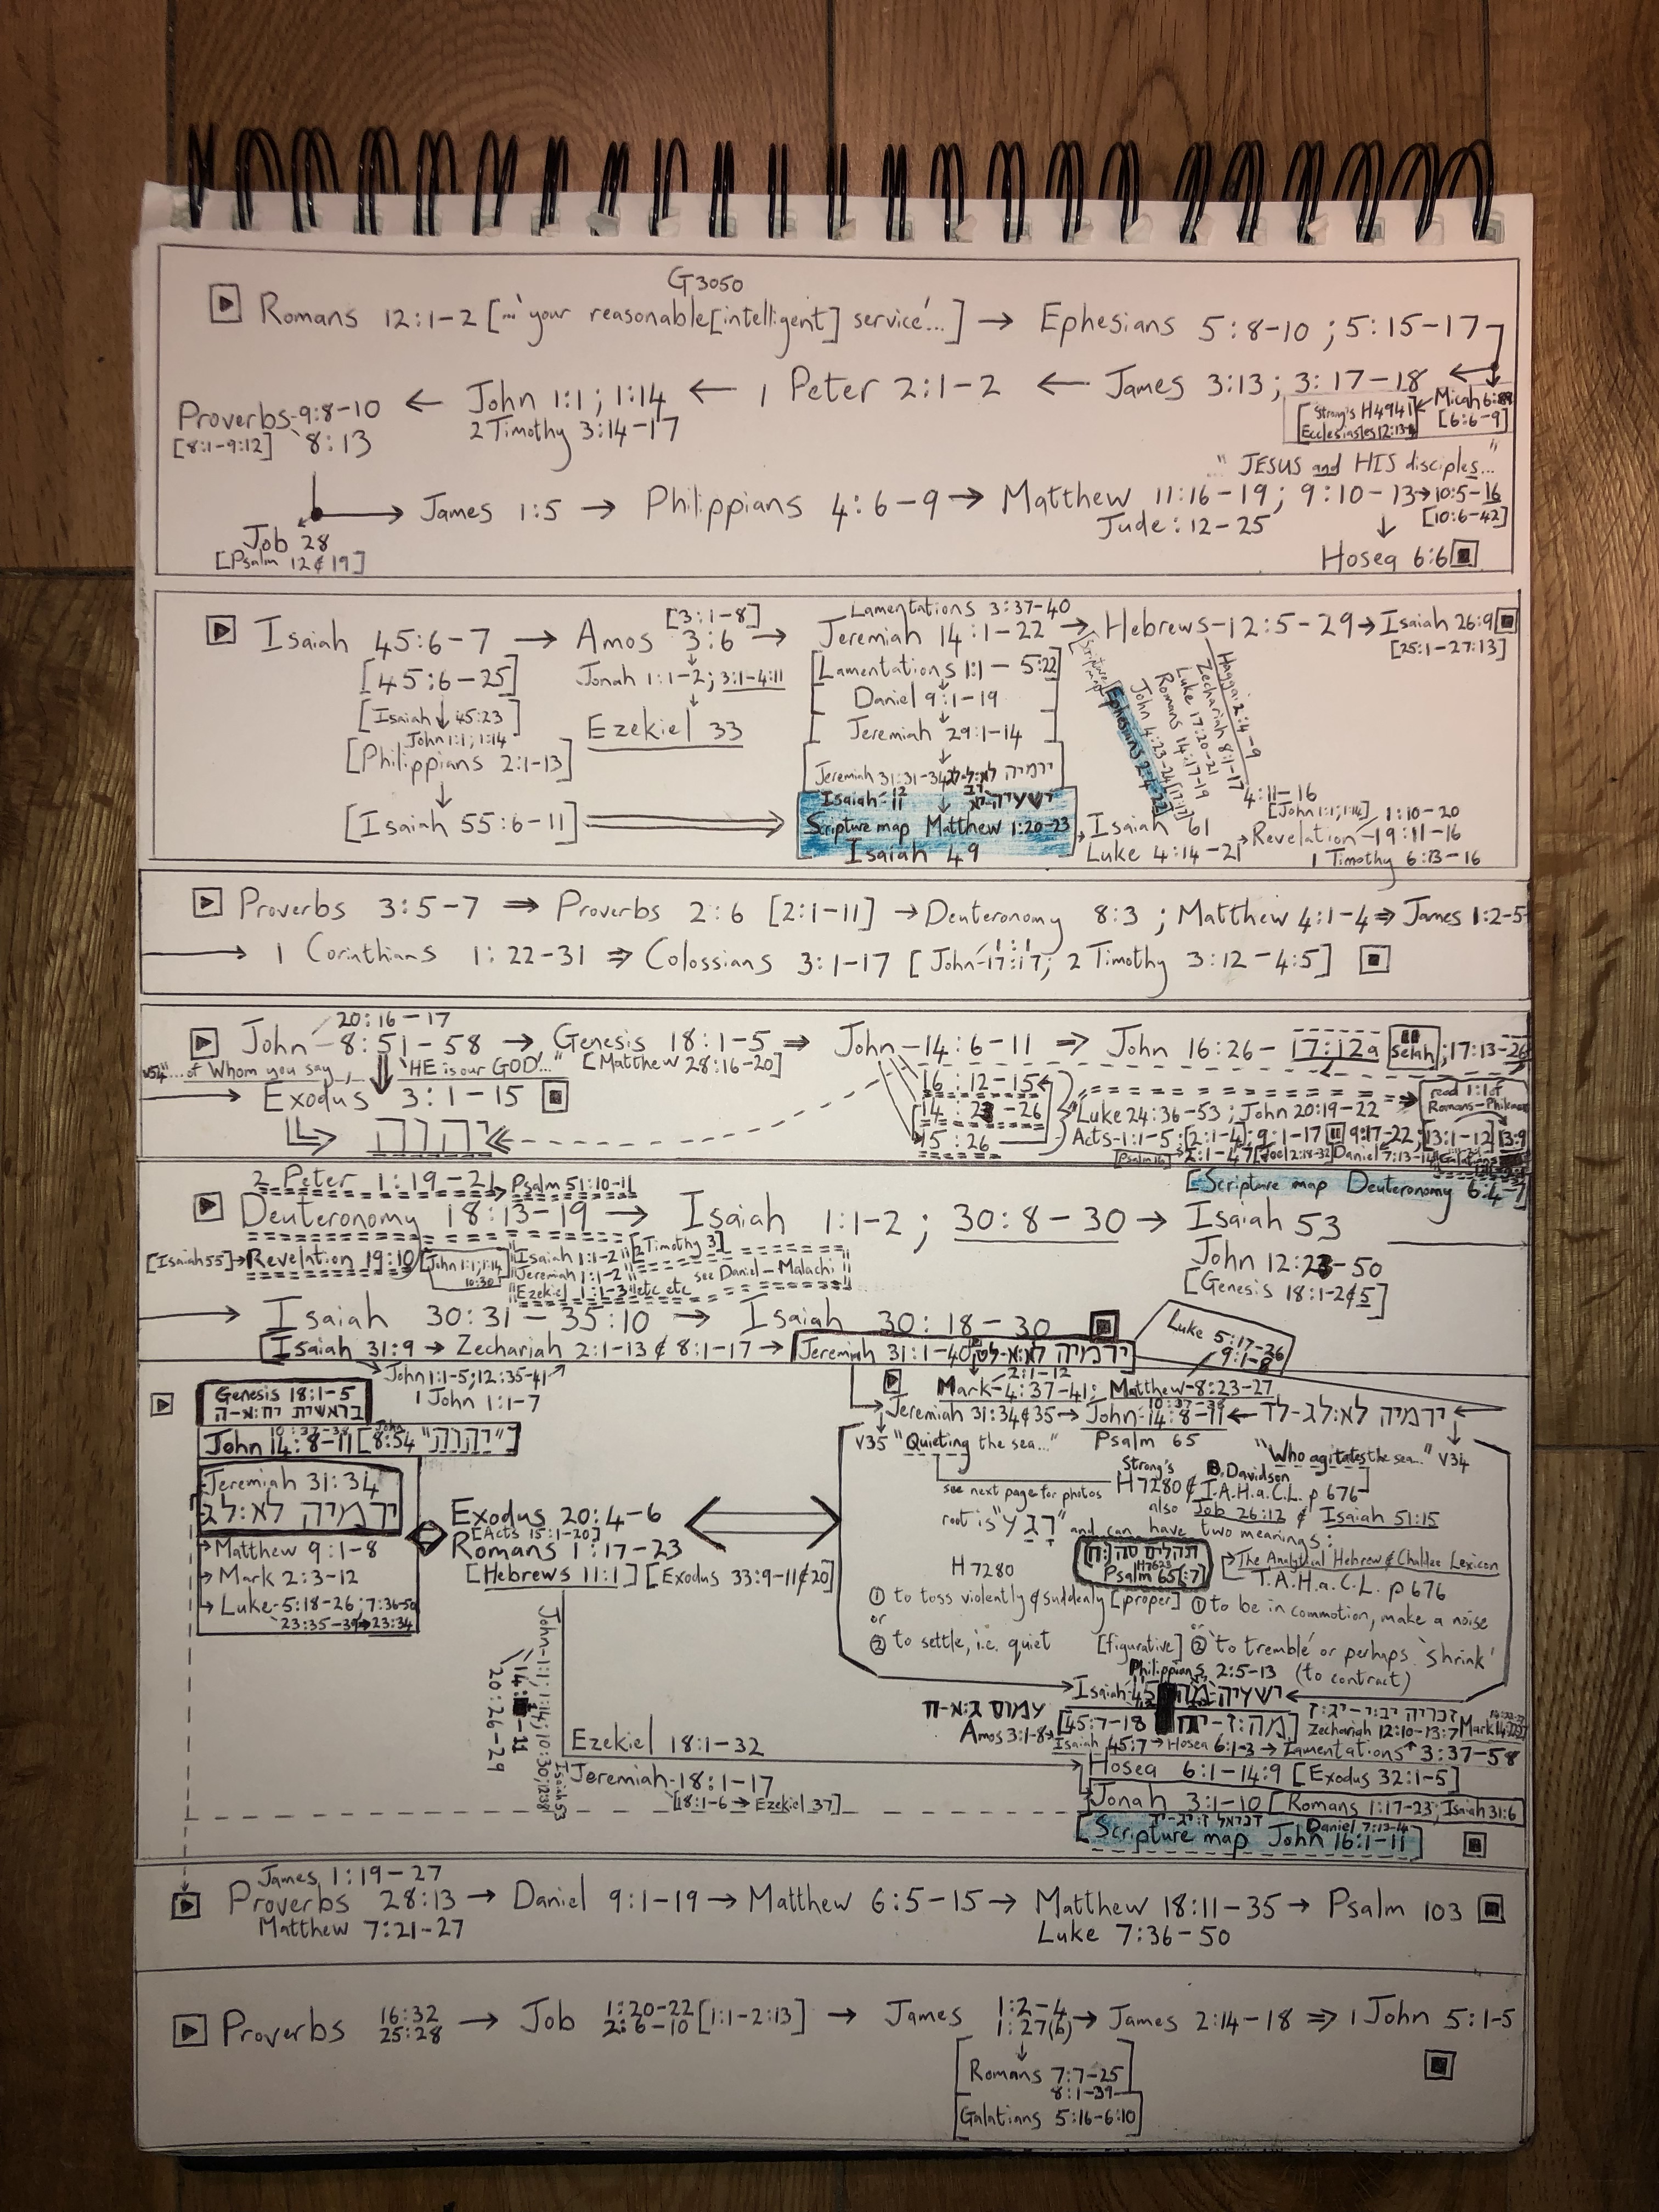 G3050
▶ Romans 12:1-2 [...'your reasonable[intelligent] service'...] → Ephesians 5:8-10 ; 5:15-17
Proverbs-9:8-10 ← John 1:1 ; 1:14 ← 1 Peter 2:1-2 ← James 3:13 ; 3:17-18 ←
[8:1-9:12] 8:13 2 Timothy 3:14-17
[Strong's H4941 ← Micah 6:
Ecclesiastes 12:13 [6:6-9]
"JESUS and HIS disciples..."
→ James 1:5 → Philippians 4:6-9 → Matthew 11:16-19 ; 9:10-13 → 10:5-16
Jude : 12-25 [10:6-42]
Job 28
[Psalm 12 & 19]
Hosea 6:6
[3:1-8] Lamentations 3:37-40
▶ Isaiah 45:6-7 → Amos 3:6 → Jeremiah 14:1-22 → Hebrews-12:5-29 → Isaiah 26:9
[25:1-27:13]
[45:6-25] Jonah 1:1-2; 3:1-4:11 [Lamentations 1:1 - 5:22
[Isaiah ↓ 45:23] Ezekiel 33 Daniel 9:1-19
John 1:1; 1:14 Jeremiah 29:1-14
[Philippians 2:1-13]
Jeremiah 31:31-34 ירמיה
Isaiah-11 12 ישעיה-יא יב
[Isaiah 55:6-11] ⇒ Scripture map Matthew 1:20-23
Isaiah 49
Scripture map
Ephesians 2:4-22
John 4:23-24 [17:17]
Romans 14:17-19
Luke 17:20-21
Zechariah 8:1-17
Haggai 2:4-9
4:11-16
[John 1:1; 1:14] 1:10-20
Isaiah 61 → Revelation-19:11-16
Luke 4:14-21 1 Timothy 6:13-16
▶ Proverbs 3:5-7 ⇒ Proverbs 2:6 [2:1-11] → Deuteronomy 8:3 ; Matthew 4:1-4 ⇒ James 1:2-5
→ 1 Corinthians 1:22-31 ⇒ Colossians 3:1-17 [John-17:17; 1:1 2 Timothy 3:12-4:5]
20:16-17
▶ John-8:51-58 → Genesis 18:1-5 ⇒ John-14:6-11 ⇒ John 16:26-17:12a Selah ; 17:13-26
v54 "...of Whom you say, 'HE is our GOD'..." [Matthew 28:16-20]
→ Exodus 3:1-15
16:12-15
14: -26
15:26
יהוה
read 1:1 of
Romans-Philemon
Luke 24:36-53 ; John 20:19-22
Acts-1:1-5; [2:1-4]; 9:1-17 9:17-22; [13:1-12] 13:9
[Psalm 16] 2:1-47 [Joel 2:18-32] Daniel 7:13-14 Galatians
[Scripture map Deuteronomy 6:4-7]
2 Peter 1:19-21 → Psalm 51:10-11
▶ Deuteronomy 18:13-19 → Isaiah 1:1-2 ; 30:8-30 → Isaiah 53
[Isaiah 55] → Revelation 19:10 [John 1:1; 1:14 10:30] Isaiah 1:1-2 [2 Timothy 3]
Jeremiah 1:1-2 see Daniel-Malachi
Ezekiel 1:1-3 etc etc
John 12:23-50
[Genesis 18:1-2 & 5]
→ Isaiah 30:31-35:10 → Isaiah 30:18-30
[Isaiah 31:9 → Zechariah 2:1-13 & 8:1-17 → Jeremiah 31:1-40 ירמיה
Luke 5:17-26
9:1-8
John 1:1-5; 12:35-41
1 John 1:1-7
▶ Genesis 18:1-5
בראשית יח:א-ה
10:37-38 John
John 14:8-11 [8:54 "יהוה"]
Jeremiah 31:34
ירמיה לא:לג
Matthew 9:1-8
Mark 2:3-12
Luke-5:18-26; 7:36-50
23:35-39 → 23:34
2:1-12
▶ Mark-4:37-41; Matthew-8:23-27
10:37-38
Jeremiah 31:34 & 35 → John-14:8-11 ← ירמיה לא:לג-לד
v35 "Quieting the sea..." Psalm 65 "Who agitates the sea..." v34
Strong's B. Davidson
see next page for photos H7280 & T.A.H.a.C.L. p 676
also Job 26:12 & Isaiah 51:15
root is "רגע" and can have two meanings:
תהלים סה
H7623
Psalm 65[:7]
The Analytical Hebrew & Chaldee Lexicon
H7280 T.A.H.a.C.L. p 676
① to toss violently & suddenly [proper] ① to be in commotion, make a noise
or
② to settle, i.e. quiet [figurative] ② 'to tremble' or perhaps 'shrink'
(to contract)
Exodus 20:4-6
[Acts 15:1-20]
Romans 1:17-23
[Hebrews 11:1] [Exodus 33:9-11 & 20]
John-1:1; 1:14; 10:30; 12:38
Isaiah 53
20:26-29
Philippians 2:5-13
Isaiah-45 ישעיה-מה
עמוס ג:א-ח
Amos 3:1-8 [45:7-18 מה:ז-יח]
זכריה יב:י-יג:ז
Zechariah 12:10-13:7 Mark
Isaiah 45:7 → Hosea 6:1-3 → Lamentations 3:37-58
Ezekiel 18:1-32
Hosea 6:1-14:9 [Exodus 32:1-5]
Jeremiah-18:1-17
[18:1-6 → Ezekiel 37]
Jonah 3:1-10 [Romans 1:17-23; Isaiah 31:6
דניאל ז:יג-יד Daniel 7:13-14
[Scripture map John 16:1-11]
James 1:19-27
▶ Proverbs 28:13 → Daniel 9:1-19 → Matthew 6:5-15 → Matthew 18:11-35 → Psalm 103
Matthew 7:21-27 Luke 7:36-50
▶ Proverbs 16:32 25:28 → Job 1:20-22 2:6-10 [1:1-2:13] → James 1:2-4 1:27(b) → James 2:14-18 ⇒ 1 John 5:1-5
Romans 7:7-25
8:1-39
Galatians 5:16-6:10